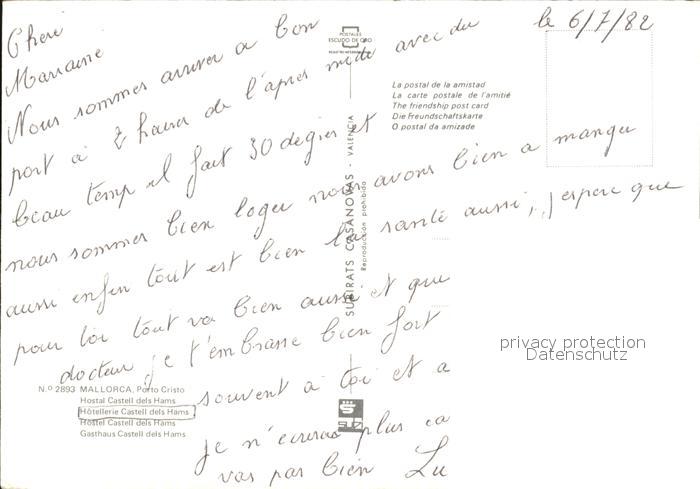 le 6/7/82
Cheri
Marraine
Nous sommes arriver a bon
port à 2 heures de l'apres midi avec du
beau temp il fait 30 degres et
nous sommes bien loger nous avons bien a mangu
aussi enfin tout est bien la santé aussi, j'espere que
pour toi tout va bien aussi et que
docteur je t'embrasse bien fort
souvent à toi et a
je n'ecrirai plus ca
vas pas bien Lu
POSTALES
ESCUDO DE ORO
La postal de la amistad
La carte postale de l'amitié
The friendship post card
Die Freundschaftskarte
O postal da amizade
SUBIRATS CASANOVAS - VALENCIA
Reproducción prohibida
N.º 2893 MALLORCA, Porto Cristo
Hostal Castell dels Hams
Hôtellerie Castell dels Hams
Hostel Castell dels Hams
Gasthaus Castell dels Hams
privacy protection
Datenschutz